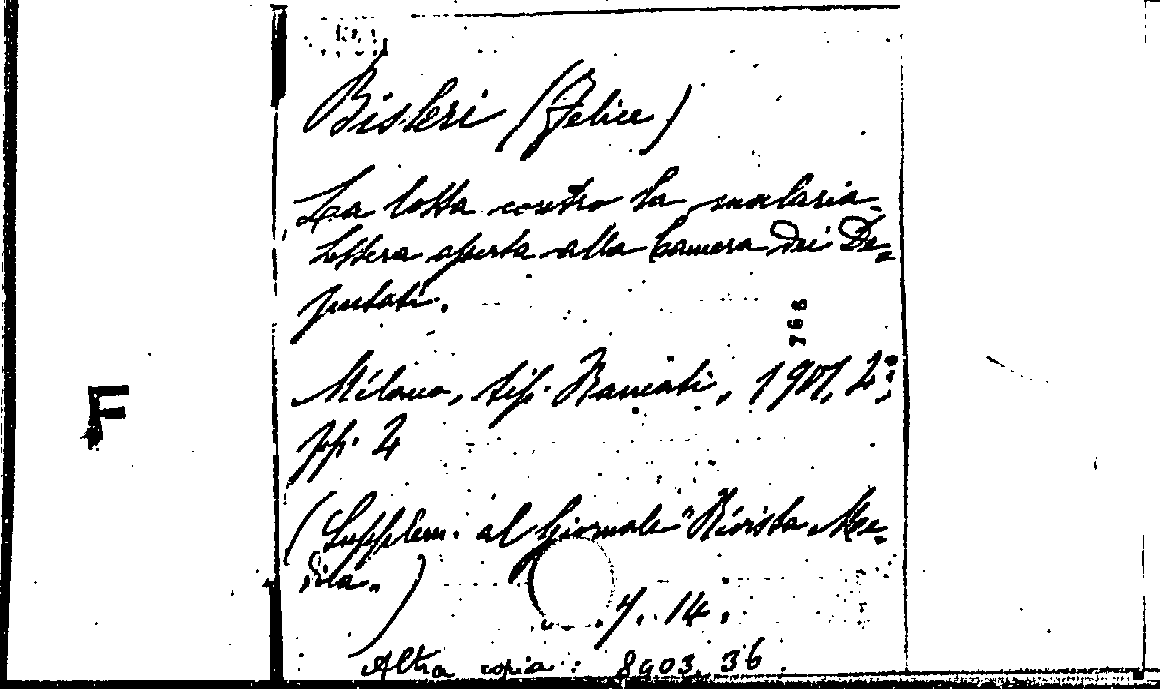 Bisleri (Felice)
La lotta contro la malaria.
Lettera aperta alla Camera dei De=
putati.
766
Milano, tip. Bancati, 1901, 2°;
pp. 2
F
(Supplem. al Giornale "Rivista Me=
dica„)
7. 14.
Altra copia: 8903. 36.